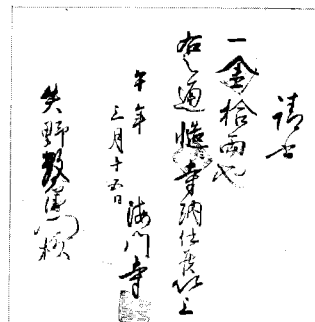 請書
一金拾両也
右之通慥ニ寺納仕候以上
午年
三月十五日
海門寺
矢野数右衛門様